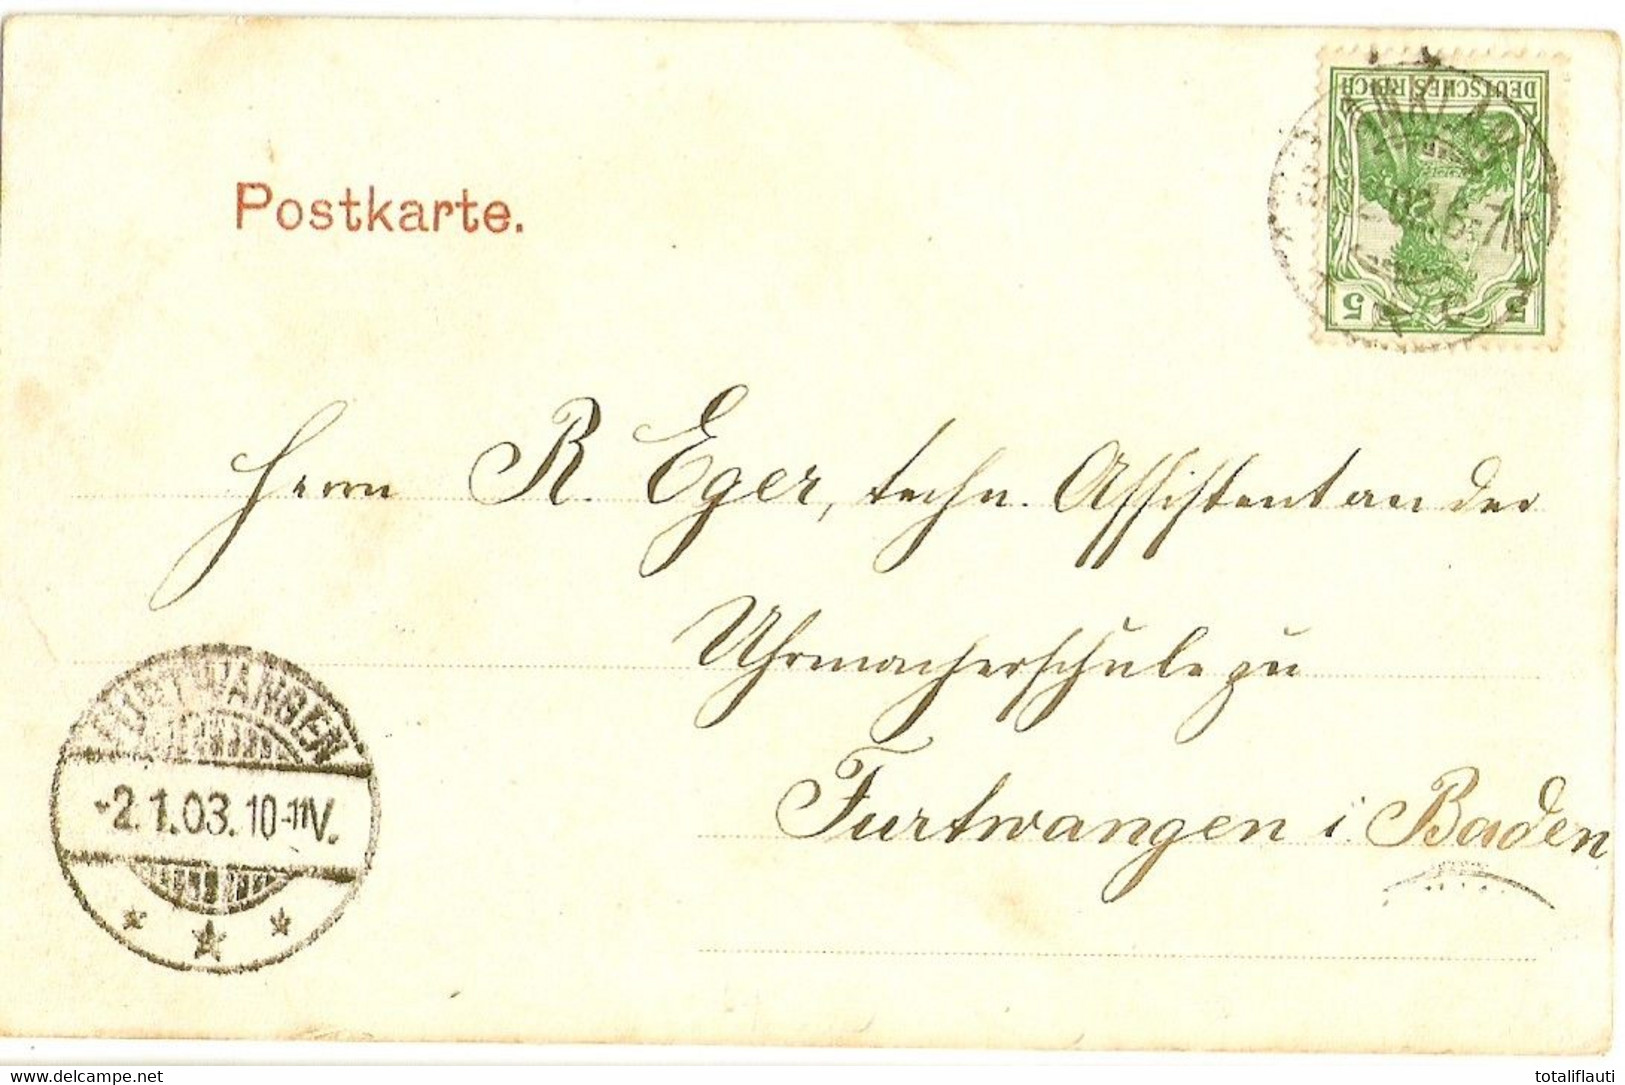 Postkarte.
DEUTSCHES REICH
5 5
Herrn R. Eger, techn. Assistent an der
Uhrmacherschule zu
Furtwangen i. Baden
FURTWANGEN
-2.1.03. 10-11V.
https://www.delcampe.net
totaliflauti